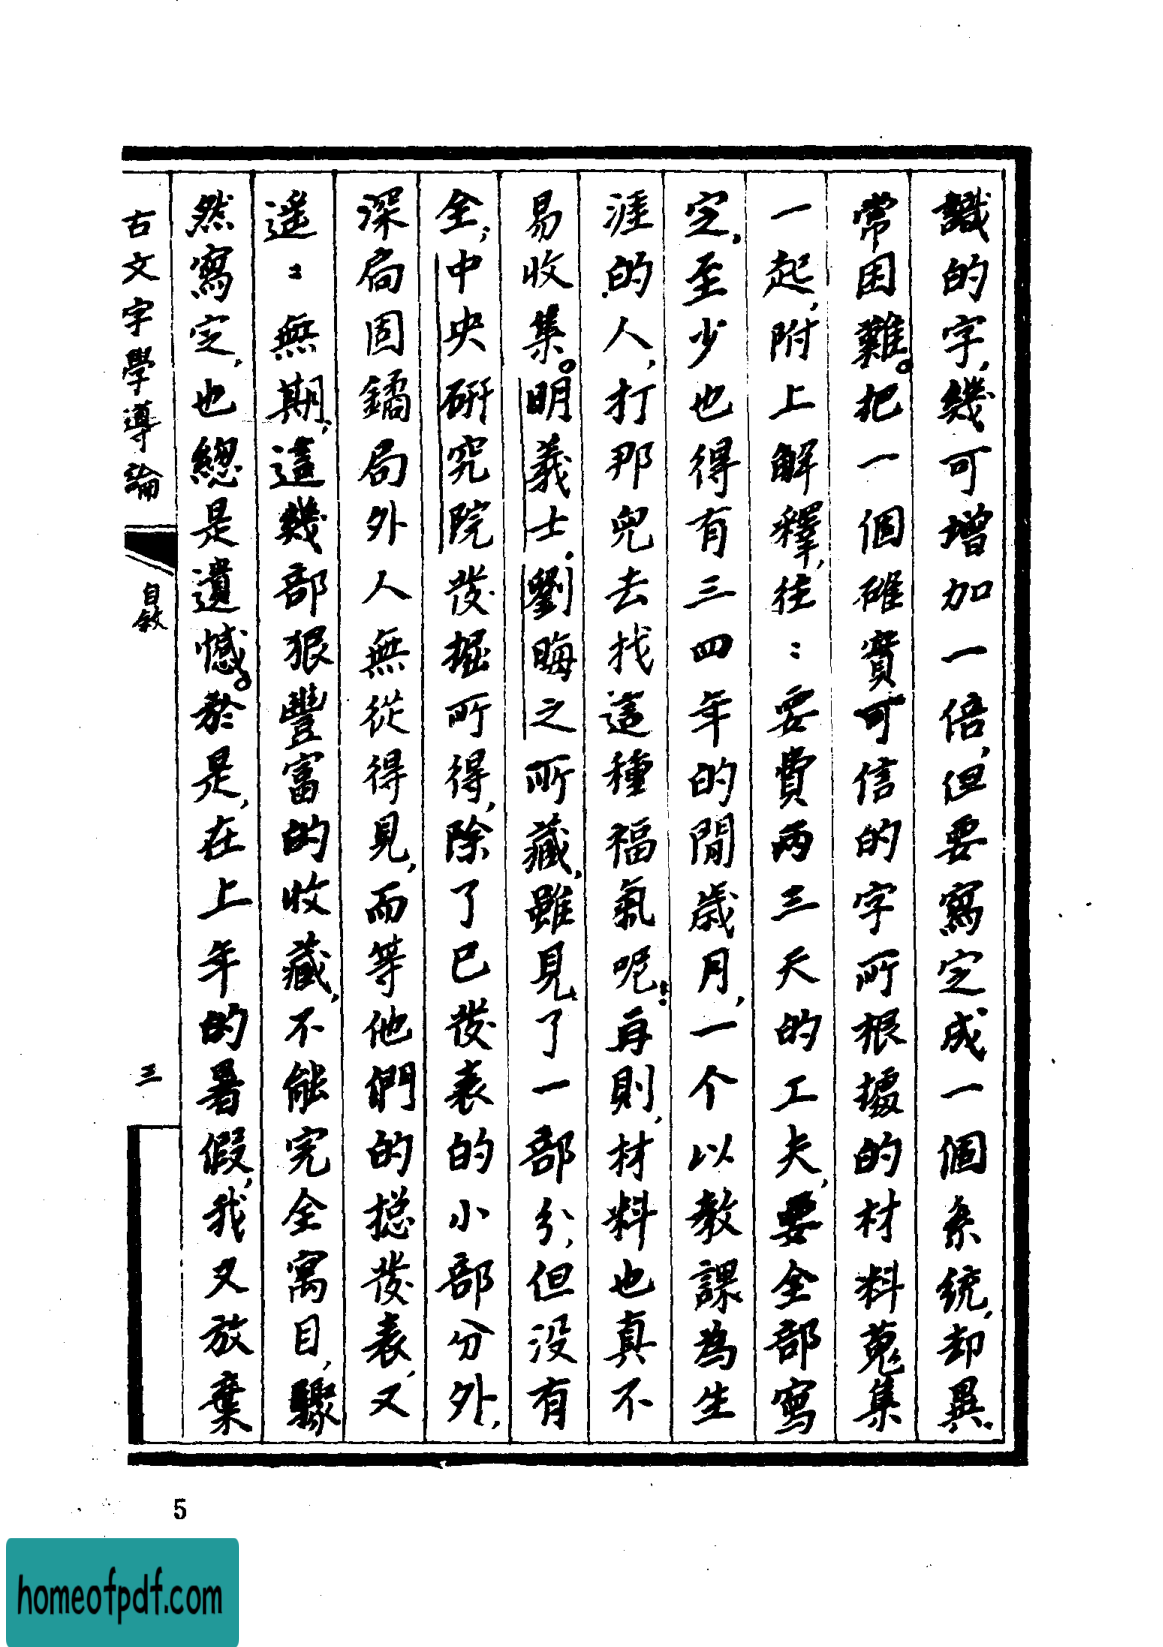 識的字，幾可增加一倍，但要寫定成一個系統，却異
常困難。把一個確實可信的字所根據的材料蒐集
一起，附上解釋，往：要費兩三天的工夫，要全部寫
定，至少也得有三四年的閒歲月，一个以教課為生
涯的人，打那兒去找這種福氣呢；再則，材料也真不
易收集。明義士．劉晦之所藏，雖見了一部分，但没有
全，中央研究院發掘所得，除了已發表的小部分外，
深扃固鐍局外人無從得見，而等他們的總發表，又
遥：無期，這幾部狠豐富的收藏，不能完全寓目，驟
然寫定，也總是遺憾。於是，在上年的暑假，我又放棄
古文字學導論
自敘
三
5
homeofpdf.com